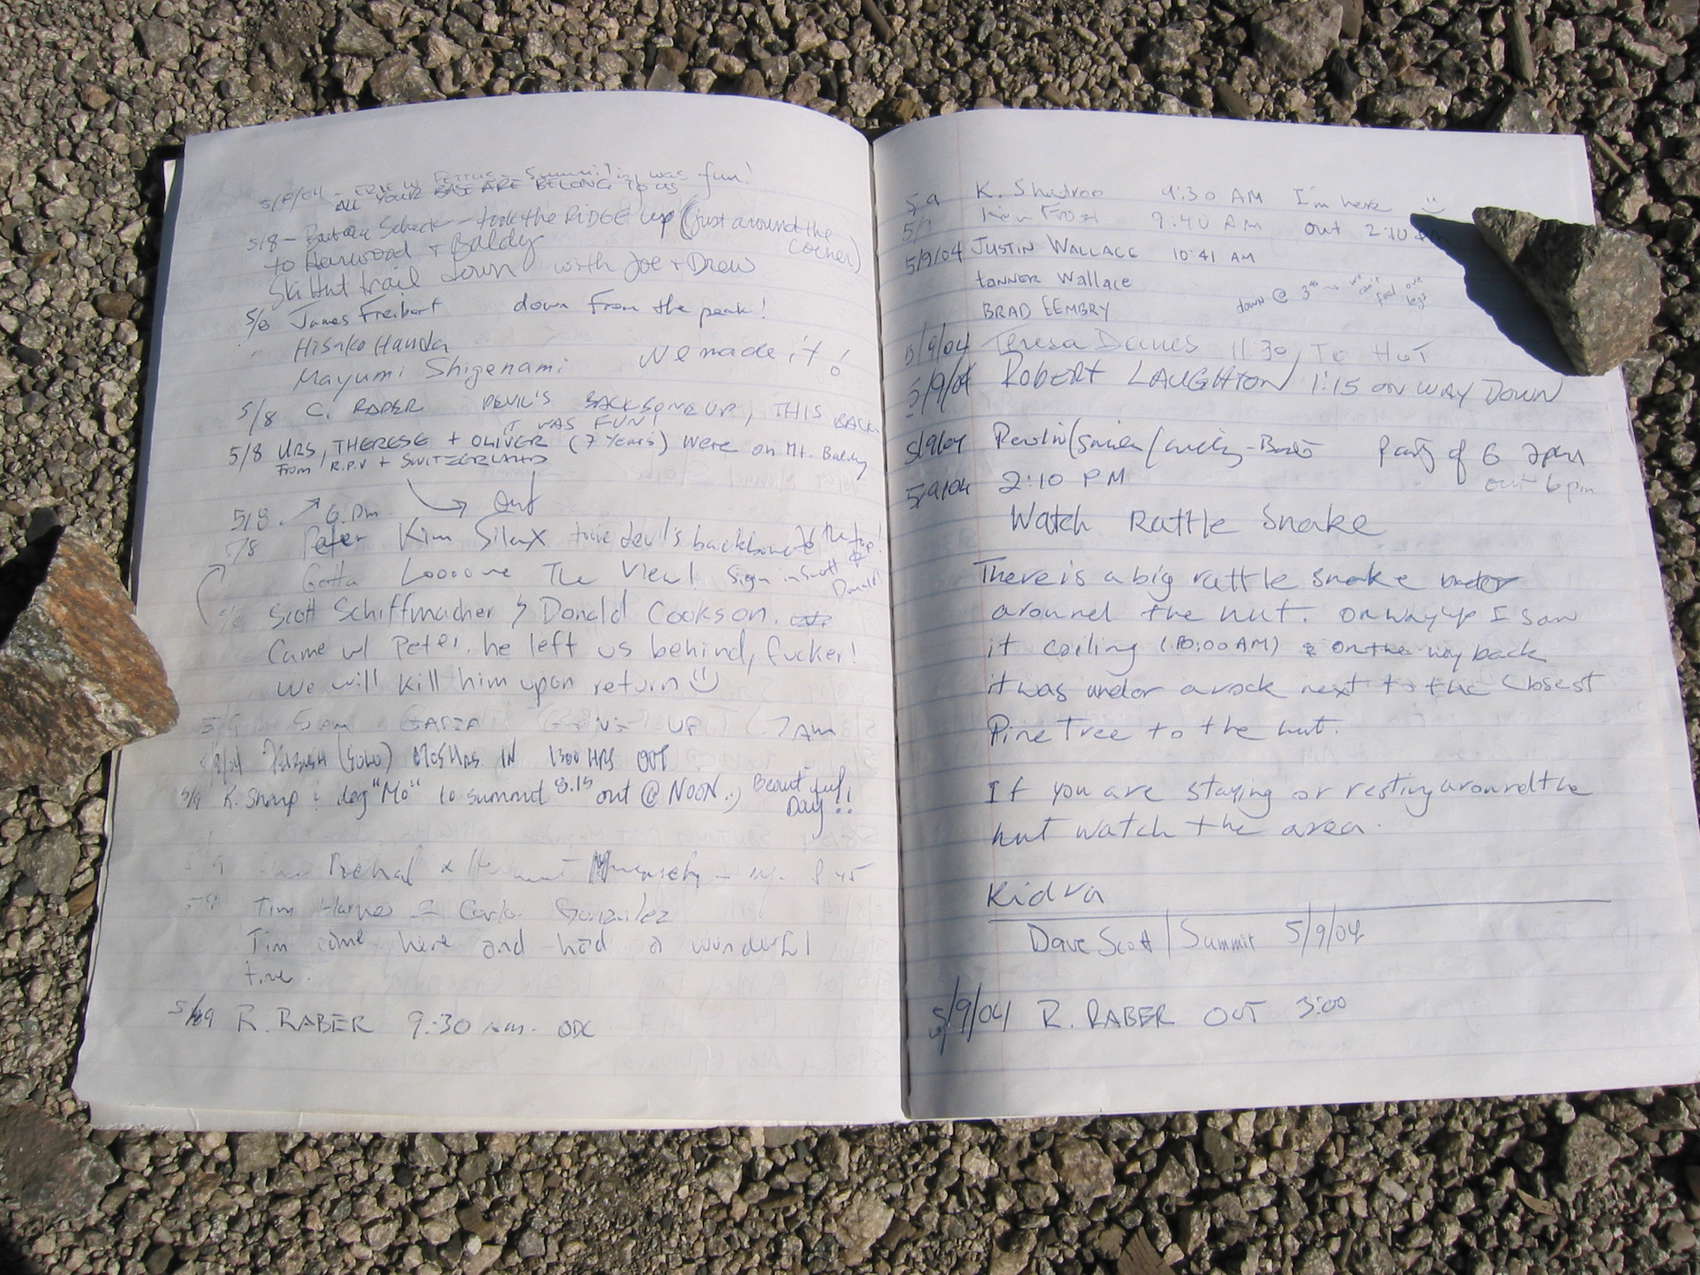 5/8/04 - Summiting was fun!
ALL YOUR BASE ARE BELONG TO US
5/8 - Barbara - took the RIDGE up (just around the corner)
to Harwood + Baldy
Ski Hut trail down with Joe + Drew
5/8 James Freibert down from the peak!
Hisako Handa
Mayumi Shigenami We made it!
5/8 C. RABER DEVIL'S BACKBONE UP, THIS BACK
IT WAS FUN!
5/8 URS, THERESE + OLIVER (7 Years) were on Mt. Baldy
From R.P.V + SWITZERLAND
5/8. 6 pm Out
5/8 Peter Kim took devil's backbone to the top!
Gotta Loooove The View! Sign in Scott & Donald!
Scott Schiffmacher & Donald Cookson.
Came w/ Peter. he left us behind, fucker!
We will kill him upon return
5 AM UP 7 AM
(SOLO) HRS IN 1300 HRS OUT
5/9 K. Sharp & dog "Mo" to summit 8:15 out @ NOON :) Beautiful Day!!
Tim & Carlos Gonzalez
Tim came here and had a wonderful
time.
5/9 R. RABER 9:30 AM.
5/9 K. 9:30 AM I'm here
5/9 9:40 AM out 2:10 PM
5/9/04 JUSTIN WALLACE 10:41 AM
tanner Wallace
BRAD EEMBRY down @ 3
5/9/04 Teresa 11:30 To HUT
5/9/04 ROBERT LAUGHTON 1:15 ON WAY DOWN
5/9/04 Party of 6 2pm
out 6 pm
5/9/04 2:10 PM
Watch Rattle Snake
There is a big rattle snake
around the hut. On way up I saw
it coiling (10:00 AM) & on the way back
it was under a rock next to the closest
Pine Tree to the hut.
If you are staying or resting around the
hut watch the area.
Kidva
Dave Scott | Summit 5/9/04
5/9/04 R. RABER OUT 3:00